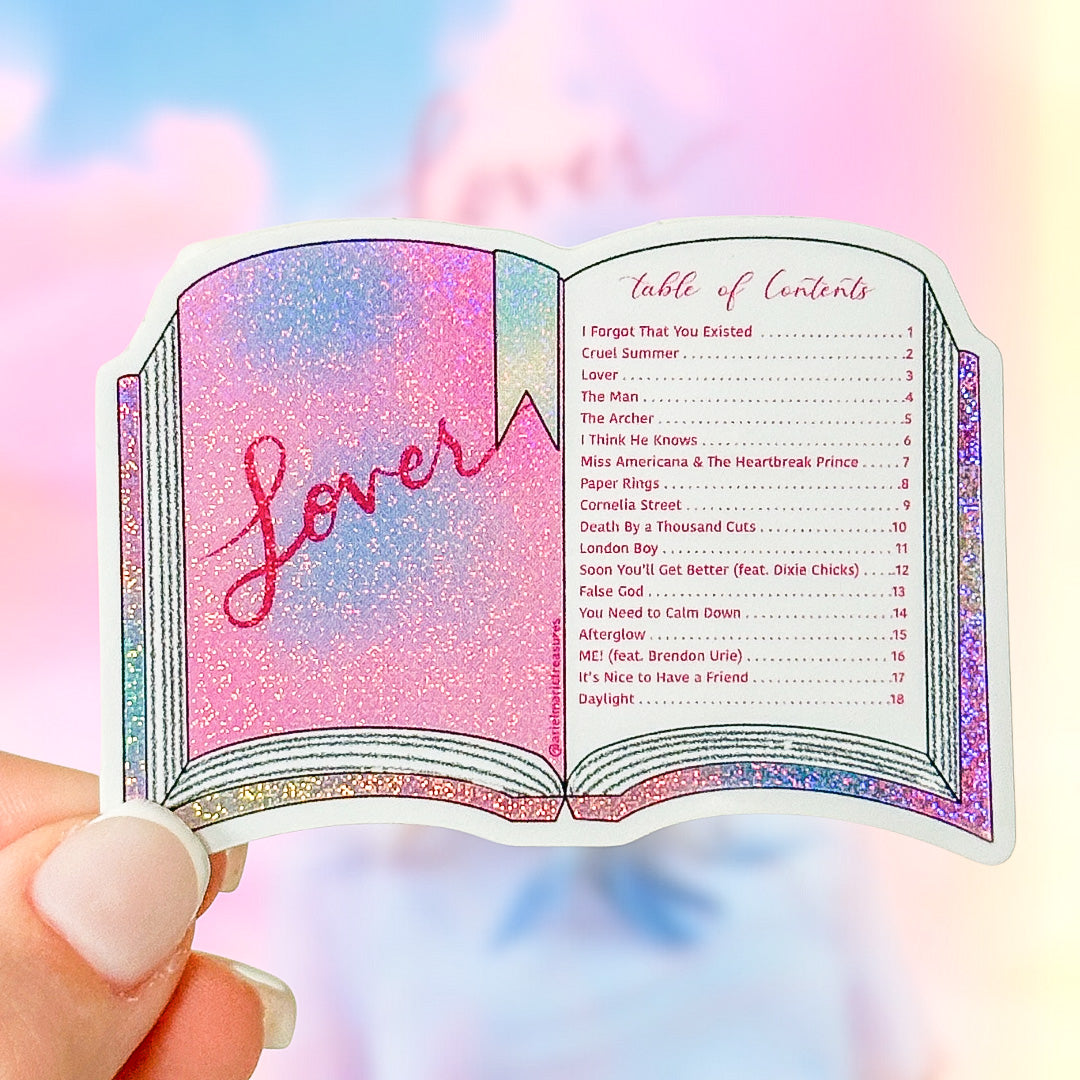 Lover
Lover
@arielmarietreasures
table of Contents
I Forgot That You Existed ..................... 1
Cruel Summer ..................... 2
Lover ..................... 3
The Man ..................... 4
The Archer ..................... 5
I Think He Knows ..................... 6
Miss Americana & The Heartbreak Prince ..... 7
Paper Rings ..................... 8
Cornelia Street ..................... 9
Death By a Thousand Cuts ..................... 10
London Boy ..................... 11
Soon You'll Get Better (feat. Dixie Chicks) ..... 12
False God ..................... 13
You Need to Calm Down ..................... 14
Afterglow ..................... 15
ME! (feat. Brendon Urie) ..................... 16
It's Nice to Have a Friend ..................... 17
Daylight ..................... 18